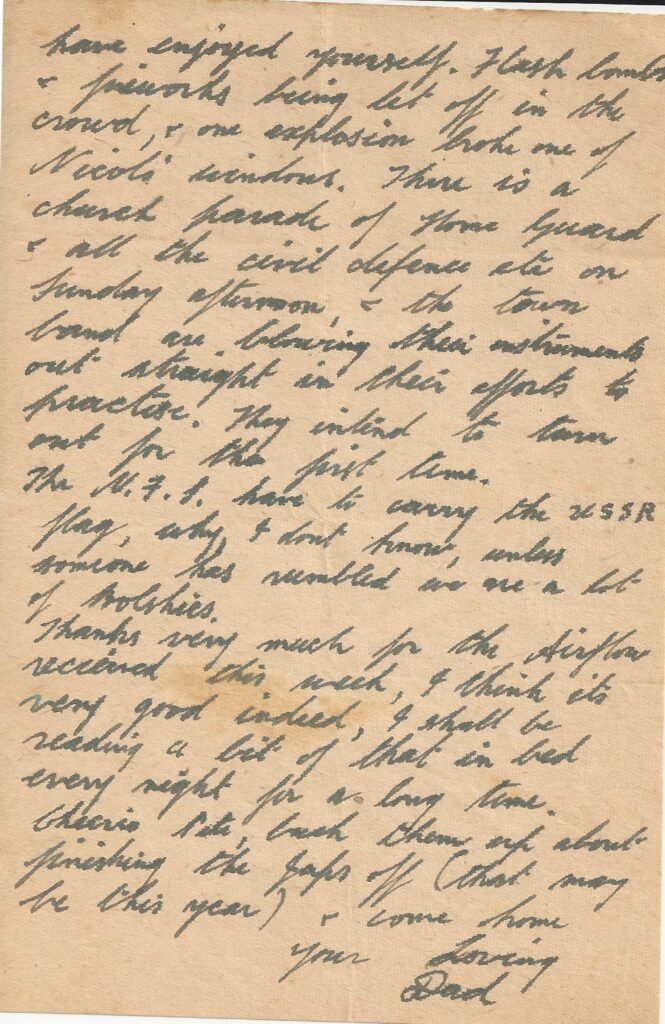 have enjoyed yourself. Flash bombs
& fireworks being let off in the
crowd, & one explosion broke one of
Nicols' windows. There is a
church parade of Home Guard
& all the civil defence etc on
Sunday afternoon, & the town
band are blowing their instruments
out straight in their efforts to
practise. They intend to turn
out for the first time.
The N.F.S. have to carry the USSR
flag, why, I dont know, unless
someone has rumbled we are a lot
of Bolshies.
Thanks very much for the Airflow
recieved this week, I think its
very good indeed, I shall be
reading a bit of that in bed
every night for a long time.
Cheerio Pete, buck them up about
finishing the Japs off (that may
be this year) & come home
your Loving
Dad